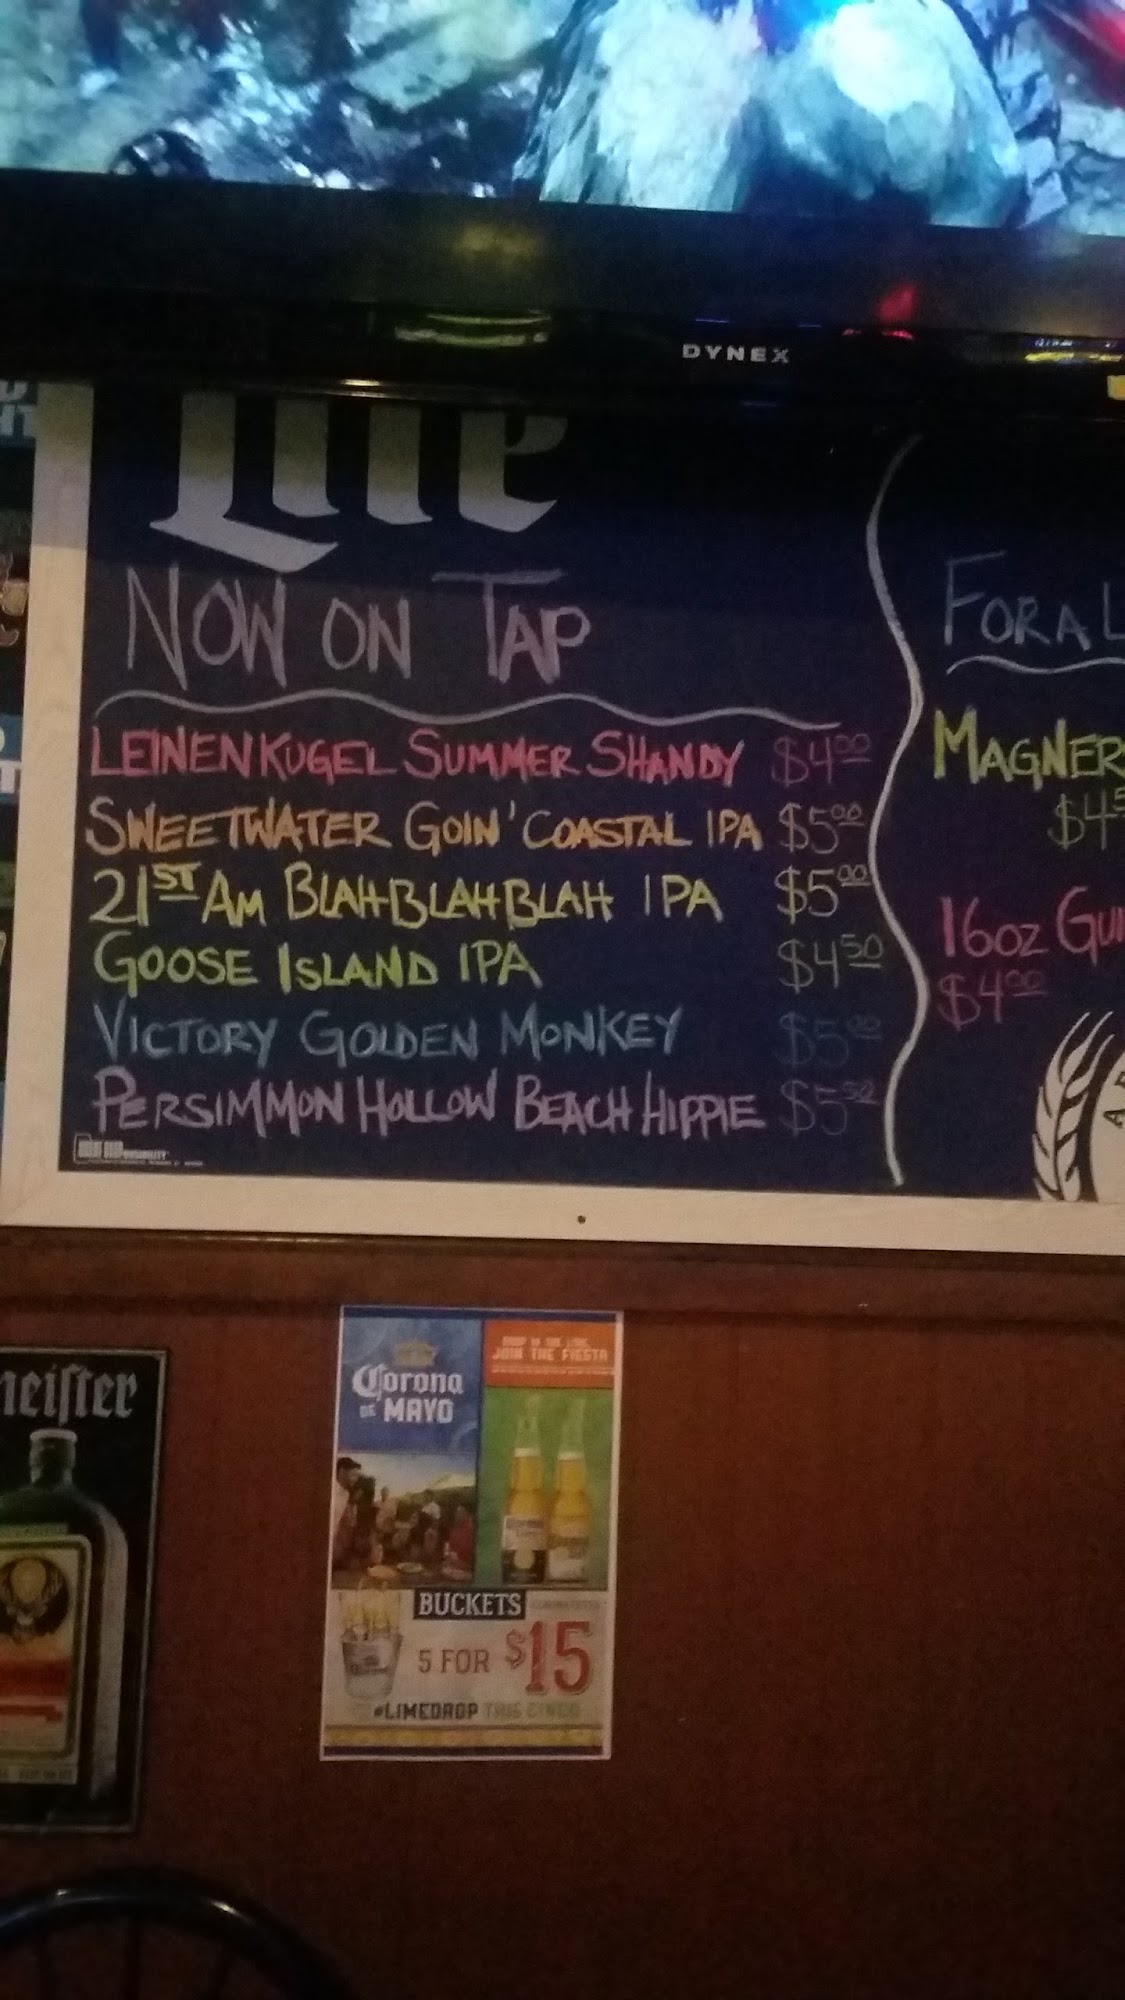 DYNEX
Lite
NOW ON TAP
LEINENKUGEL SUMMER SHANDY $4.00
SWEETWATER GOIN' COASTAL IPA $5.00
21ST AM BLAH BLAH BLAH IPA $5.00
GOOSE ISLAND IPA $4.50
VICTORY GOLDEN MONKEY $5.00
PERSIMMON HOLLOW BEACH HIPPIE $5.50
FOR A L
MAGNER
$4.5
16oz GUI
$4.00
meister
Corona
DE MAYO
JOIN THE FIESTA
BUCKETS
5 FOR $15
#LIMEDROP THIS CINCO